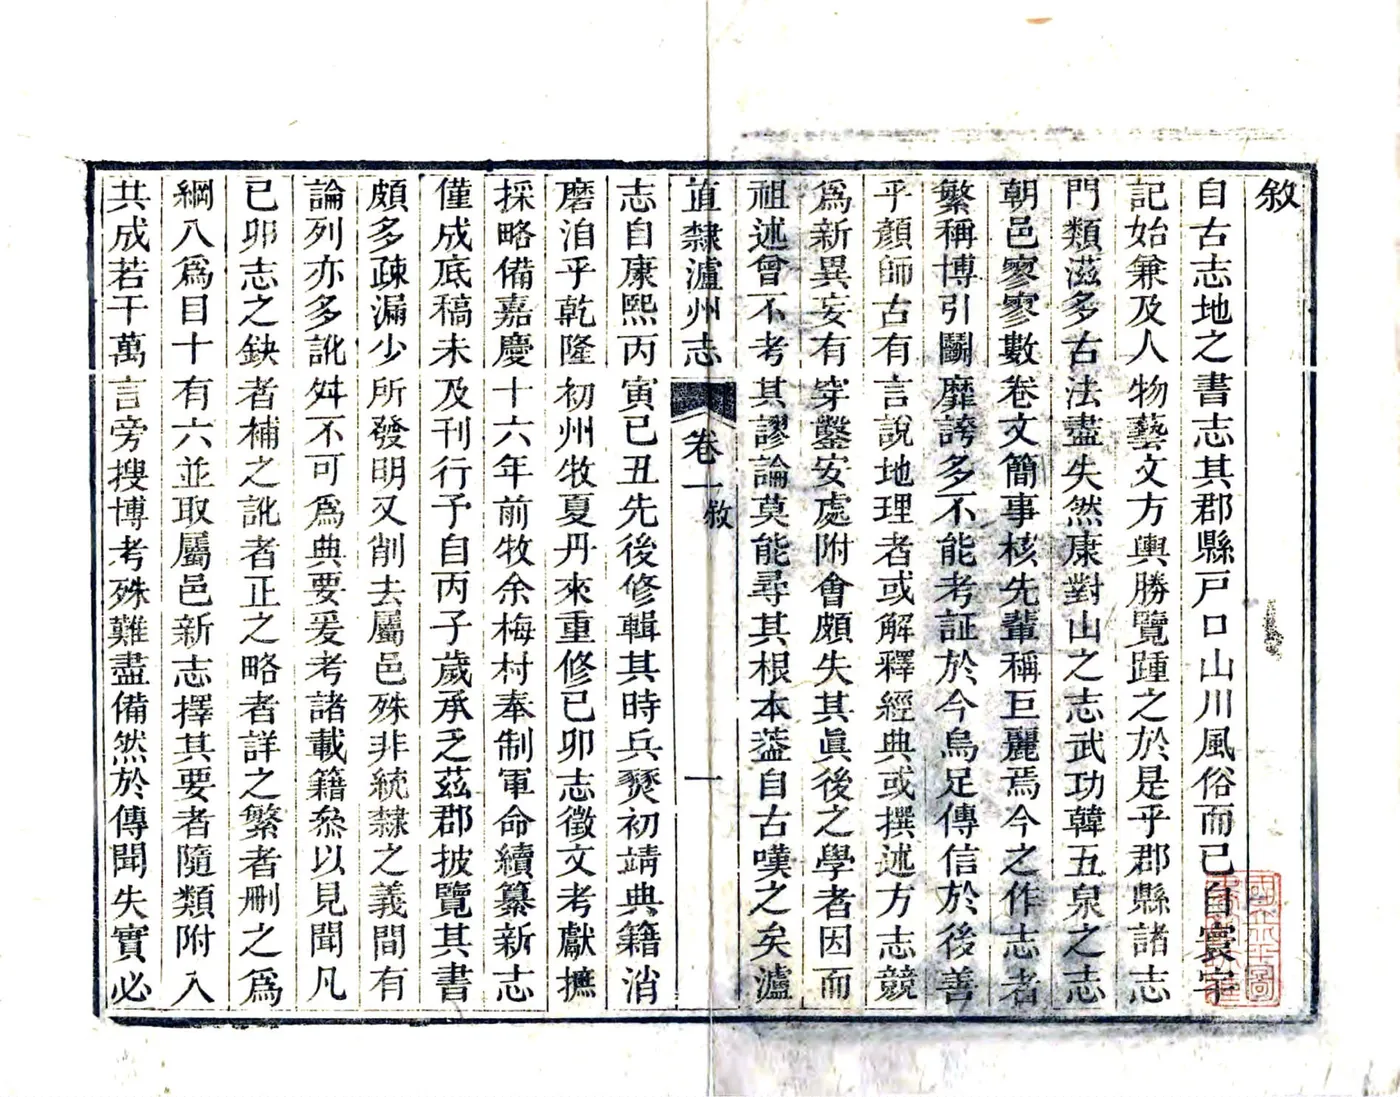 敘
自古志地之書志其郡縣戸口山川風俗而已自寰宇
記始兼及人物藝文方輿勝覽踵之於是乎郡縣諸志
門類滋多古法盡失然康對山之志武功韓五泉之志
朝邑寥寥數卷文簡事核先輩稱巨麗焉今之作志者
繁稱博引鬬靡誇多不能考証於今烏足傳信於後善
乎顏師古有言說地理者或解釋經典或撰述方志競
爲新異妄有穿鑿安處附會頗失其眞後之學者因而
祖述曾不考其謬論莫能尋其根本葢自古嘆之矣瀘
直隸瀘州志
卷一
敘
一
志自康熙丙寅已丑先後修輯其時兵燹初靖典籍消
磨洎乎乾隆初州牧夏丹來重修已卯志徵文考獻摭
採略備嘉慶十六年前牧余梅村奉制軍命續纂新志
僅成底稿未及刊行予自丙子歲承乏茲郡披覽其書
頗多疎漏少所發明又削去屬邑殊非統隸之義間有
論列亦多訛舛不可爲典要爰考諸載籍叅以見聞凡
已卯志之缺者補之訛者正之略者詳之繁者刪之爲
綱八爲目十有六並取屬邑新志擇其要者隨類附入
共成若干萬言旁搜博考殊難盡備然於傳聞失實必